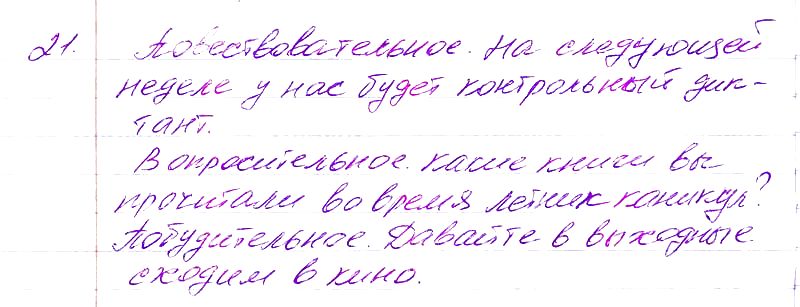 21. Повествовательное. На следующей
неделе у нас будет контрольный дик-
тант.
Вопросительное. Какие книги вы
прочитали во время летних каникул?
Побудительное. Давайте в выходные
сходим в кино.